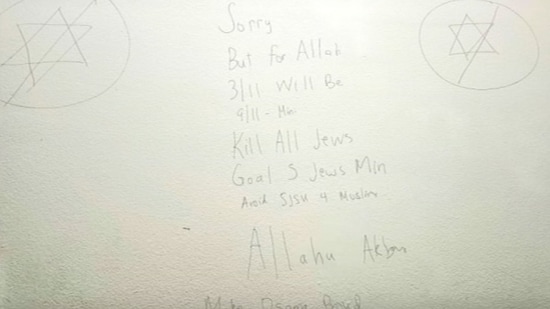 Sorry
But for Allah
3/11 Will Be
9/11 -
Kill All Jews
Goal 5 Jews Min
SJSU 4 Muslims
Allahu Akbar